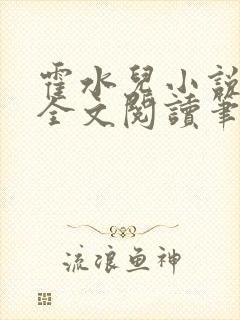 霍水兒小說
全文閱讀筆
流浪鱼神